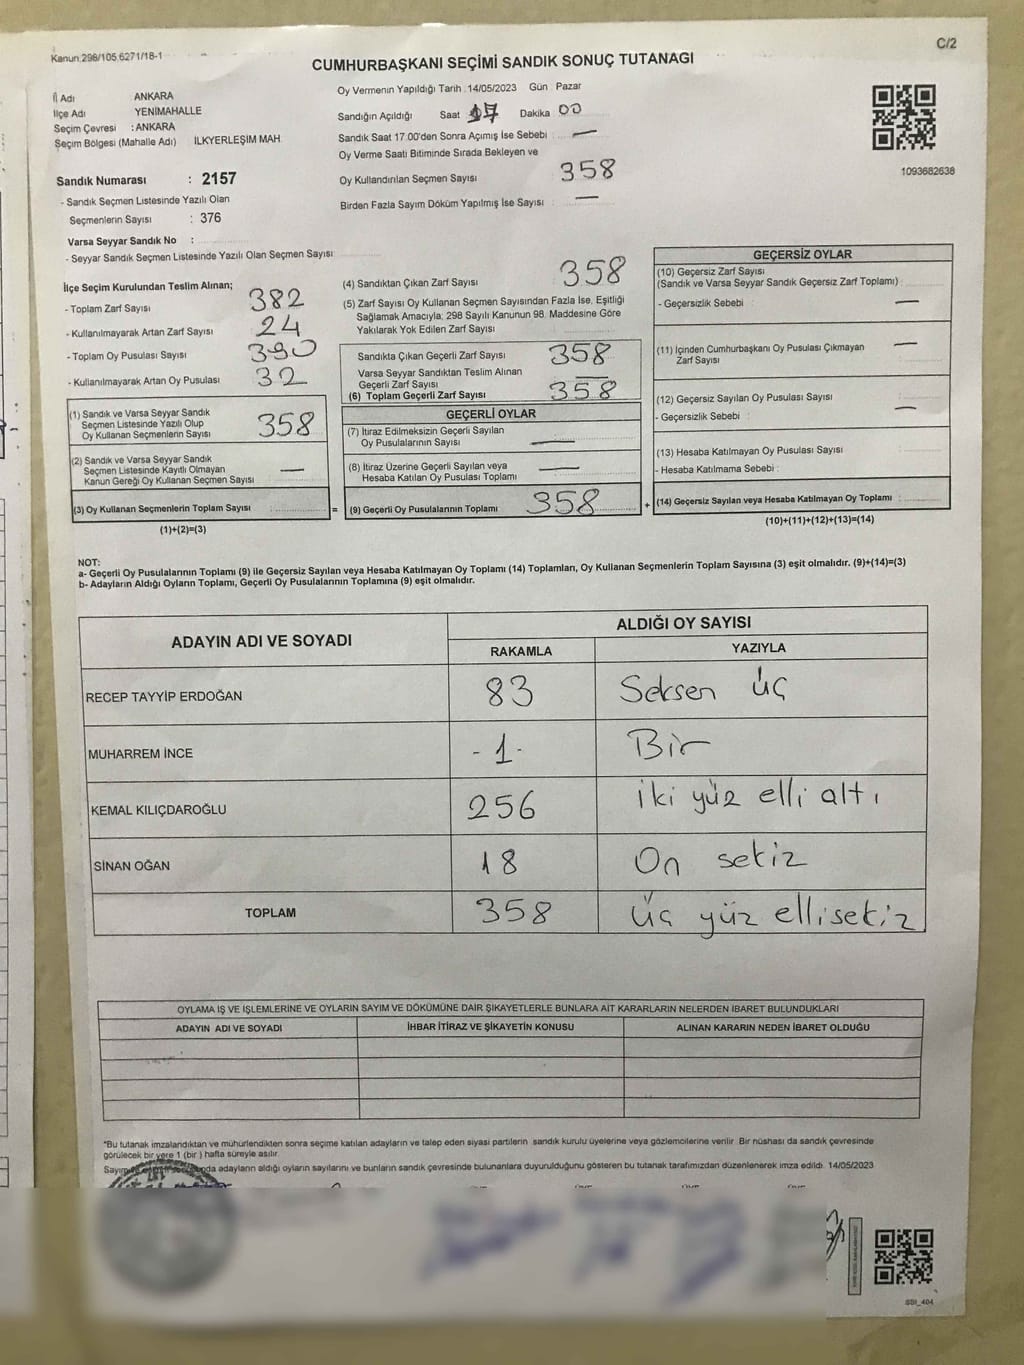 Kanun:298/105,6271/18-1
C/2
CUMHURBAŞKANI SEÇİMİ SANDIK SONUÇ TUTANAGI
İl Adı ANKARA
İlçe Adı YENİMAHALLE
Seçim Çevresi : ANKARA
Seçim Bölgesi (Mahalle Adı) İLKYERLEŞİM MAH
Sandık Numarası : 2157
- Sandık Seçmen Listesinde Yazılı Olan
Seçmenlerin Sayısı : 376
Varsa Seyyar Sandık No :
- Seyyar Sandık Seçmen Listesinde Yazılı Olan Seçmen Sayısı
Oy Vermenin Yapıldığı Tarih :14/05/2023 Gün : Pazar
Sandığın Açıldığı Saat 17 Dakika 00
Sandık Saat 17.00'den Sonra Açımış İse Sebebi : —
Oy Verme Saati Bitiminde Sırada Bekleyen ve
Oy Kullandırılan Seçmen Sayısı : 358
Birden Fazla Sayım Döküm Yapılmış İse Sayısı : —
1093682638
İlçe Seçim Kurulundan Teslim Alınan;
- Toplam Zarf Sayısı 382
- Kullanılmayarak Artan Zarf Sayısı 24
- Toplam Oy Pusulası Sayısı 390
- Kullanılmayarak Artan Oy Pusulası 32
(1) Sandık ve Varsa Seyyar Sandık
Seçmen Listesinde Yazılı Olup
Oy Kullanan Seçmenlerin Sayısı 358
(2) Sandık ve Varsa Seyyar Sandık
Seçmen Listesinde Kayıtlı Olmayan
Kanun Gereği Oy Kullanan Seçmen Sayısı —
(3) Oy Kullanan Seçmenlerin Toplam Sayısı =
(1)+(2)=(3)
(4) Sandıktan Çıkan Zarf Sayısı 358
(5) Zarf Sayısı Oy Kullanan Seçmen Sayısından Fazla İse, Eşitliği
Sağlamak Amacıyla; 298 Sayılı Kanunun 98. Maddesine Göre
Yakılarak Yok Edilen Zarf Sayısı
Sandıkta Çıkan Geçerli Zarf Sayısı 358
Varsa Seyyar Sandıktan Teslim Alınan
Geçerli Zarf Sayısı —
(6) Toplam Geçerli Zarf Sayısı 358
GEÇERLİ OYLAR
(7) İtiraz Edilmeksizin Geçerli Sayılan
Oy Pusulalarının Sayısı —
(8) İtiraz Üzerine Geçerli Sayılan veya
Hesaba Katılan Oy Pusulası Toplamı —
(9) Geçerli Oy Pusulalarının Toplamı 358 +
GEÇERSİZ OYLAR
(10) Geçersiz Zarf Sayısı
(Sandık ve Varsa Seyyar Sandık Geçersiz Zarf Toplamı) :
- Geçersizlik Sebebi : —
(11) İçinden Cumhurbaşkanı Oy Pusulası Çıkmayan
Zarf Sayısı —
(12) Geçersiz Sayılan Oy Pusulası Sayısı
- Geçersizlik Sebebi : —
(13) Hesaba Katılmayan Oy Pusulası Sayısı
- Hesaba Katılmama Sebebi :
(14) Geçersiz Sayılan veya Hesaba Katılmayan Oy Toplamı :
(10)+(11)+(12)+(13)=(14)
NOT:
a- Geçerli Oy Pusulalarının Toplamı (9) ile Geçersiz Sayılan veya Hesaba Katılmayan Oy Toplamı (14) Toplamları, Oy Kullanan Seçmenlerin Toplam Sayısına (3) eşit olmalıdır. (9)+(14)=(3)
b- Adayların Aldığı Oyların Toplamı, Geçerli Oy Pusulalarının Toplamına (9) eşit olmalıdır.
ADAYIN ADI VE SOYADI ALDIĞI OY SAYISI
RAKAMLA YAZIYLA
RECEP TAYYİP ERDOĞAN 83 Seksen üç
MUHARREM İNCE - 1 - Bir
KEMAL KILIÇDAROĞLU 256 iki yüz elli altı
SİNAN OĞAN 18 On sekiz
TOPLAM 358 üç yüz elli sekiz
OYLAMA İŞ VE İŞLEMLERİNE VE OYLARIN SAYIM VE DÖKÜMÜNE DAİR ŞİKAYETLERLE BUNLARA AİT KARARLARIN NELERDEN İBARET BULUNDUKLARI
ADAYIN ADI VE SOYADI İHBAR İTİRAZ VE ŞİKAYETİN KONUSU ALINAN KARARIN NEDEN İBARET OLDUĞU
*Bu tutanak imzalandıktan ve mühürlendikten sonra seçime katılan adayların ve talep eden siyasi partilerin sandık kurulu üyelerine veya gözlemcilerine verilir. Bir nüshası da sandık çevresinde
görülecek bir yere 1 (bir ) hafta süreyle asılır.
adayların aldığı oyların sayılarını ve bunların sandık çevresinde bulunanlara duyurulduğunu gösteren bu tutanak tarafımızdan düzenlenerek imza edildi. 14/05/2023
SSI_404